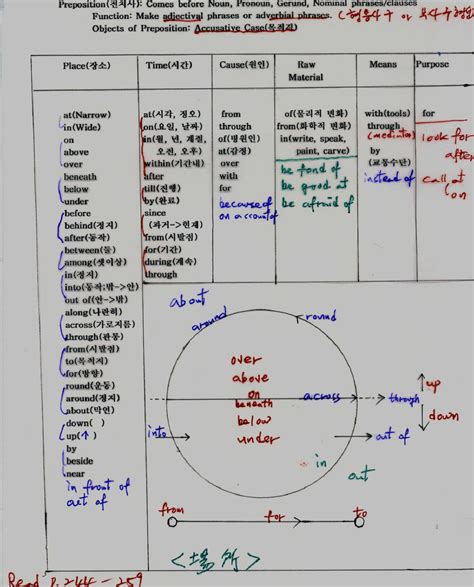 Preposition(전치사): Comes before Noun, Pronoun, Gerund, Nominal phrases/clauses
Function: Make adjectival phrases or adverbial phrases. (형용사구 or 부사구
Objects of Preposition: Accusative Case(목적격)
Place(장소)
at(Narrow)
in(Wide)
on
above
over
beneath
below
under
before
behind(정지)
after(동작)
between(둘)
among(셋이상)
in(정지)
into(동작;밖->안)
out of(안->밖)
along(나란히)
across(가로지름)
through(관통)
from(시발점)
to(목적지)
for(방향)
round(운동)
around(정지)
about(막연)
down( )
up(↑)
by
beside
near
in front of
out of
Time(시간)
at(시각, 정오)
on(요일, 날짜)
in(월, 년, 계절,
오전, 오후)
within(기간내)
after
till(진행)
by(완료)
since
(과거->현재)
from(시발점)
for(기간)
during(계속)
through
Cause(원인)
from
through
of(병원인)
at(감정)
over
with
for
because of
on account of
Raw
Material
of(물리적 변화)
from(화학적 변화)
in(write, speak,
paint, carve)
be fond of
be good at
be afraid of
Means
with(tools)
through
by
(교통수단)
instead of
Purpose
for
look for
after
call at
on
about
around
round
over
above
on
beneath
below
under
across
through
up
down
into
out of
in
out
from
for
to
<場所>
Read P. 244-259